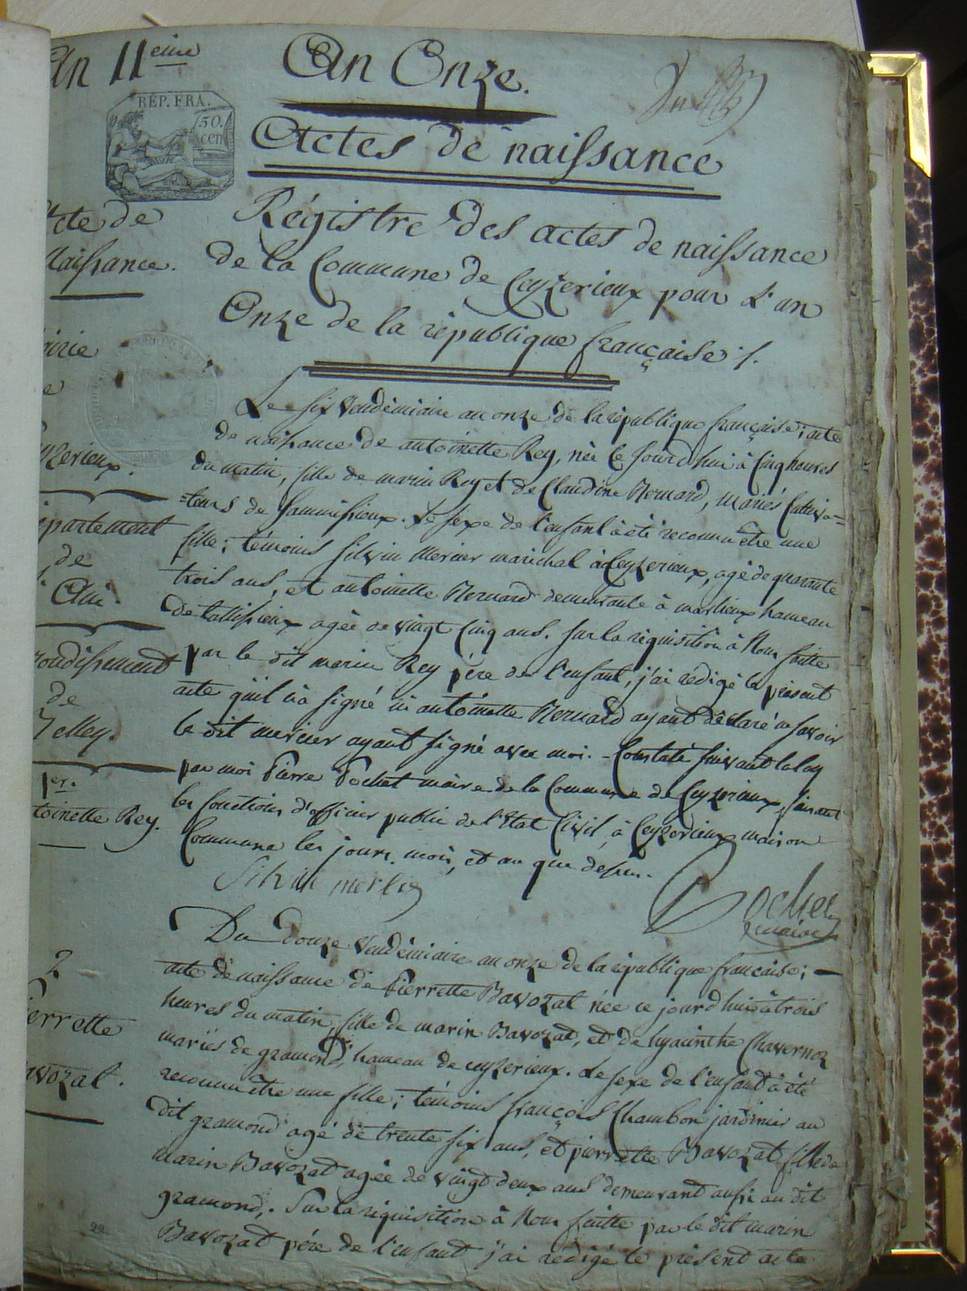 An 11eme
An Onze.
RÉP. FRA.
50.
cen
Actes de naissance
Acte de
Naissance.
Régistre des actes de naissance
de la Commune de Ceyzerieux pour l'an
Onze de la république française ./.
irie
e
yzerieux.
épartement
de
l'Ain.
rondissement
de
Belley.
1er.
toinette Rey.
Le six Vendémiaire an onze de la république française; acte
de naissance de antoinette Rey, née ce jourd'hui à Cinq heures
du matin, fille de marin Rey et de Claudine Bernard, mariés Cultiva=
=teurs de . Le sexe de l'enfant à été reconnu être une
fille; témoins silvin Mercier maréchal à Ceyzerieux, agé de quarante
trois ans, et antoinette Bernard demeurante à marlieux hameau
de talissieux agée de vingt Cinq ans. sur la réquisition à Nous faitte
par le dit marin Rey père de l'enfant, j'ai rédigé le présent
acte qu'il n'a signé ni antoinette Bernard ayant déclaré ne savoir
le dit mercier ayant signé avec moi. - Constaté suivant la loy
par moi Pierre Pochet maire de la Commune de Ceyzerieux, faisant
les fonctions d'officier public de l'Etat Civil, à Ceyzerieux maison
Commune les jours, mois, et an que dessus.
Silvin
Pochet
maire
2
ierrette
avozat.
Du Douze Vendémiaire an onze de la république française;
acte de naissance de Pierrette Bavozat née ce jourd'hui à trois
heures du matin, fille de marin Bavozat, et de hyacinthe Chavernoz
mariés de gramond, hameau de ceyzerieux. Le sexe de l'enfant à été
reconnu être une fille; témoins françois Chambon jardinier au
dit gramond agé de trente six ans, et pierrette Bavozat fille de
marin Bavozat agée de vingt deux ans demeurant aussi au dit
gramond. Sur la réquisition à Nous faitte par le dit marin
Bavozat père de l'enfant j'ai rédigé le présent acte